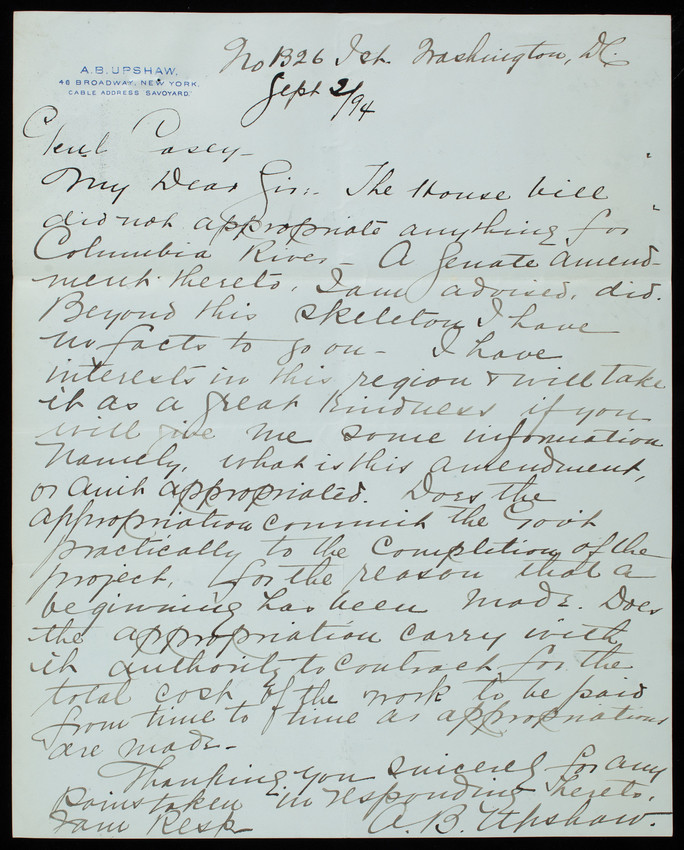 A. B. UPSHAW,
46 BROADWAY, NEW YORK.
CABLE ADDRESS "SAVOYARD."
No 1326 I st. Washington, D.C.
Sept 2/94
Genl Casey-
My Dear Sir:- The House bill
did not appropriate anything for
Columbia River - A Senate amend-
ment thereto, I am advised, did.
Beyond this skeleton I have
no facts to go on - I have
interests in this region & will take
it as a great kindness if you
will give me some information
Namely, what is this amendment,
or amt appropriated. Does the
appropriation commit the Govt
practically to the completion of the
project, for the reason that a
beginning has been made. Does
the appropriation carry with
it authority to contract for the
total cost of the work to be paid
from time to time as appropriations
are made-
Thanking you sincerely for any
pains taken in responding hereto,
I am Resp
A. B. Upshaw.